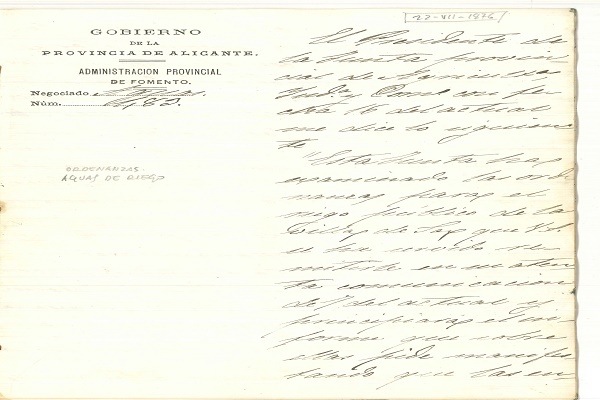 [22-VII-1876]
GOBIERNO
DE LA
PROVINCIA DE ALICANTE.
ADMINISTRACION PROVINCIAL
DE FOMENTO.
Negociado
Núm.
ORDENANZAS.
AGUAS DE RIEGO
El Presidente de
la Junta provin
cial de
con fe
cha 16 del actual
me dice lo siguien
te
"Esta Junta ha
examinado las orde
nanzas para el
riego público de la
Villa de Sax que V.S.
se ha servido re
mitirle en su aten
ta comunicacion
de 7 del actual y
principiará el in
forme que sobre
ellas pide manifes
tando que las en